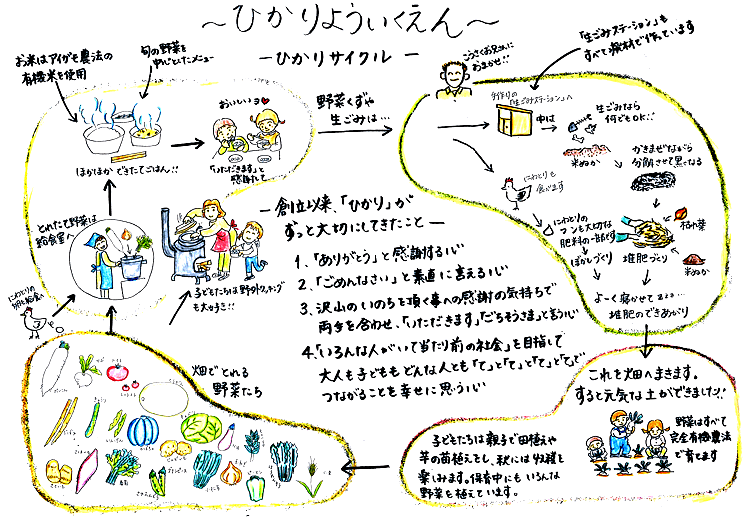 ～ひかりよういくえん～
ーひかりサイクルー
お米はアイガモ農法の
有機米を使用
旬の野菜を
中心としたメニュー
ほかほか できたてごはん!!
おいしいョ
「いただきます」と
感謝して
野菜くずや
生ごみは…
こうさくお兄さんに
おまかせ!!
「生ごみステーション」も
すべて廃材で作っています
手作りの
「生ごみステーション」へ
中は
生ごみなら
何でもOK!!
米ぬか
かきまぜながら
分解させて黒くなる
にわとりも
食べます
にわとりの
フンも大切な
肥料の一部です
枯れ葉
ぼかしづくり
堆肥づくり
米ぬか
よーく寝かせてzzz…
堆肥のできあがり
とれたて野菜は
給食室へ
子どもたちは野外クッキング
も大好き!!
ー創立以来、「ひかり」が
ずっと大切にしてきたことー
1、「ありがとう」と感謝する心
2、「ごめんなさい」と素直に言える心
3、沢山のいのちを頂く事への感謝の気持ちで
両手を合わせ、「いただきます」「ごちそうさま」と言う心
4、「いろんな人がいて当たり前の社会」を目指して
大人も子どもも どんな人とも「て」と「て」と「て」と「て」で
つながることを幸せに思う心
畑でとれる
野菜たち
これを畑へまきます。
すると元気な土ができました!!
野菜はすべて
完全有機農法
で育てます
子どもたちは親子で田植えや
芋の苗植えをし、秋には収穫を
楽しみます。保育中にもいろんな
野菜を植えています。